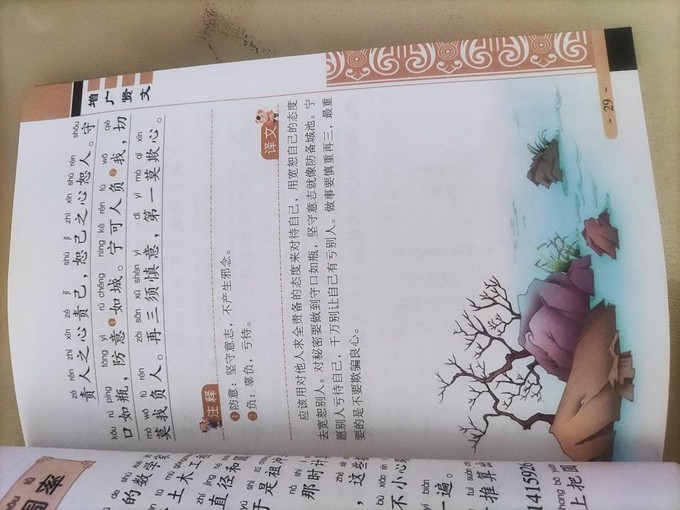 增广贤文
zé rén zhī xīn zé jǐ shù jǐ zhī xīn shù rén shǒu
责人之心责己，恕己之心恕人。守
kǒu rú píng fáng yì rú chéng nìng kě rén fù wǒ qiè
口如瓶，防意❶如城。宁可人负❷我，切
mò wǒ fù rén zài sān xū shèn yì dì yī mò qī xīn
莫我负人。再三须慎意，第一莫欺心。
注释
❶防意：坚守意志，不产生邪念。
❷负：辜负，亏待。
译文
应该用对他人求全责备的态度来对待自己，用宽恕自己的态度
去宽恕别人。对秘密要做到守口如瓶，坚守意志就像防备城池。宁
愿别人亏待自己，千万别让自己有亏别人。做事要慎重再三，最重
要的是不要欺骗良心。
- 29 -
的数学
土木工
直径和
于是祖
那时计
，这
不小心
一遍。
推算
1415926
上把圆